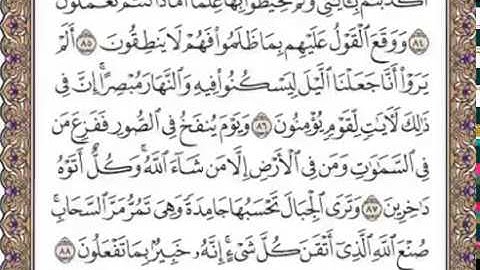 أَكَذَّبْتُم بِـَٔايَـٰتِى وَلَمْ تُحِيطُوا۟ بِهَا عِلْمًا أَمَّاذَا كُنتُمْ تَعْمَلُونَ
٨٤ وَوَقَعَ ٱلْقَوْلُ عَلَيْهِم بِمَا ظَلَمُوا۟ فَهُمْ لَا يَنطِقُونَ ٨٥ أَلَمْ
يَرَوْا۟ أَنَّا جَعَلْنَا ٱلَّيْلَ لِيَسْكُنُوا۟ فِيهِ وَٱلنَّهَارَ مُبْصِرًا ۚ إِنَّ فِى
ذَٰلِكَ لَـَٔايَـٰتٍ لِّقَوْمٍ يُؤْمِنُونَ ٨٦ وَيَوْمَ يُنفَخُ فِى ٱلصُّورِ فَفَزِعَ مَن
فِى ٱلسَّمَـٰوَٰتِ وَمَن فِى ٱلْأَرْضِ إِلَّا مَن شَآءَ ٱللَّهُ ۚ وَكُلٌّ أَتَوْهُ
دَٰخِرِينَ ٨٧ وَتَرَى ٱلْجِبَالَ تَحْسَبُهَا جَامِدَةً وَهِىَ تَمُرُّ مَرَّ ٱلسَّحَابِ ۚ
صُنْعَ ٱللَّهِ ٱلَّذِىٓ أَتْقَنَ كُلَّ شَىْءٍ ۚ إِنَّهُۥ خَبِيرٌۢ بِمَا تَفْعَلُونَ ٨٨